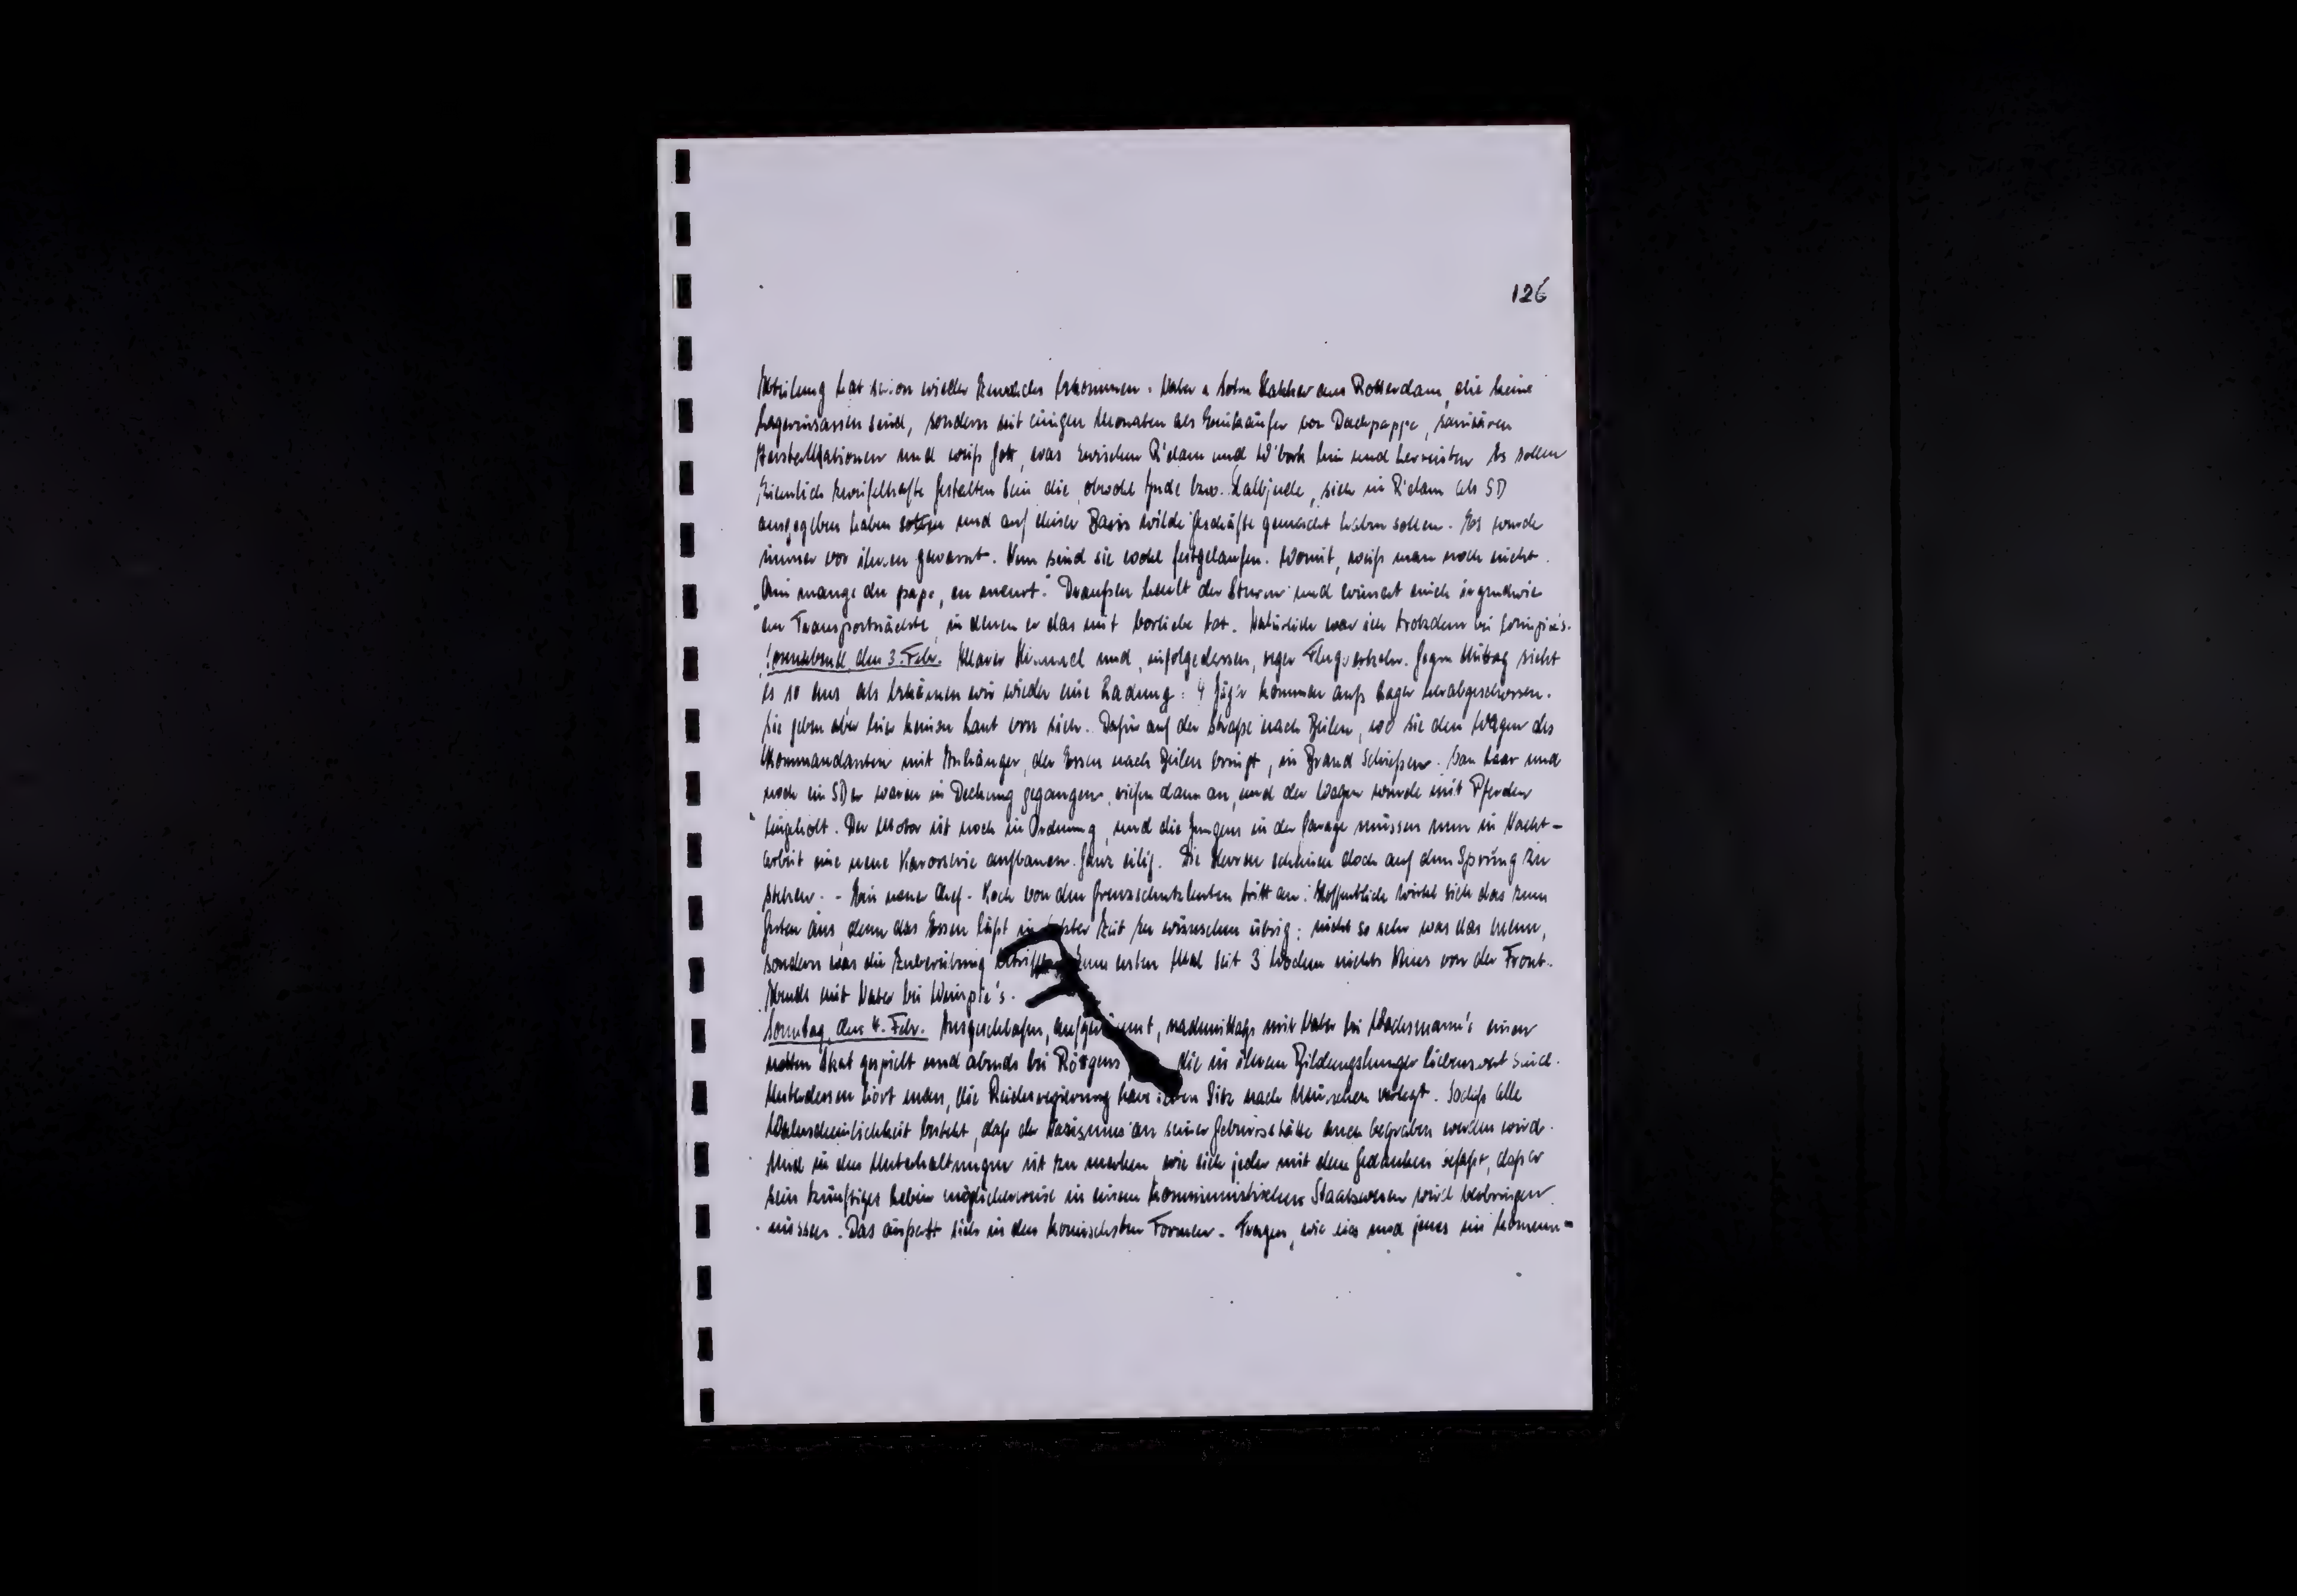 126
Abteilung hat schon wieder Zuwachs bekommen: Vater u. Sohn Kakker aus Rotterdam, die keine
Lagerinsassen sind, sondern seit einigen Monaten als Einkäufer von Dachpappe, sanitären
Installationen und weiß Gott, was zwischen R'dam und W'bork hin und herreisten. Es sollen
ziemlich zweifelhafte Gestalten sein die, obwohl Jude bzw. Halbjude, sich in R'dam als SD
ausgegeben haben und auf dieser Basis wilde Geschäfte gemacht haben sollen. Es wurde
immer vor ihnen gewarnt. Nun sind sie wohl festgelaufen. Womit, weiß man noch nicht.
"Qui mange du pape, en meurt." Draußen heult der Sturm und erinnert mich irgendwie
an Transportnächte, in denen er das mit Vorliebe tat. Natürlich war ich trotzdem bei
Sonnabend, den 3. Febr. Klarer Himmel und, infolgedessen, reger Flugverkehr. Gegen Mittag sieht
es so aus, als bekämen wir wieder eine Ladung: 4 Jäger kommen aufs Lager herabgeschossen.
Sie geben aber hier keinen Laut von sich. Dafür auf der Straße nach Beilen, wo sie den Wagen des
Kommandanten mit Anhänger, der Essen nach Beilen bringt, in Brand schießen. und
noch ein SDer waren in Deckung gegangen, riefen dann an, und der Wagen wurde mit Pferden
heimgeholt. Der Motor ist noch in Ordnung, und die Jungens in der Garage müssen nun in Nacht-
arbeit eine neue Karosserie aufbauen. Ganz eilig. Die Herren scheinen doch auf dem Sprung zu
stehen. - Ein neuer Chef-Koch von den Grenzschutzleuten tritt an. Hoffentlich wirkt sich das zum
Guten aus, denn das Essen läßt in letzter Zeit zu wünschen übrig: nicht so sehr was das Menu,
sondern was die Zubereitung betrifft. Zum ersten Mal seit 3 Wochen nichts Neues von der Front.
Abends mit Vater bei
Sonntag, den 4. Febr. Ausgeschlafen, aufgeräumt, nachmittags mit Vater bei Wachsmann's einen
netten Skat gespielt und abends bei Röttgens, die in ihrem Bildungshunger liebenswert sind.
Unterdessen hört man, die Reichsregierung habe ihren Sitz nach München verlegt. Sodaß alle
Wahrscheinlichkeit besteht, daß der Nazismus an seiner Geburtsstätte auch begraben werden wird.
Und in den Unterhaltungen ist zu merken wie sich jeder mit dem Gedanken befaßt, daß er
sein künftiges Leben möglicherweise in einem kommunistischen Staatswesen wird verbringen
müssen. Das äußert sich in den komischsten Formen. Fragen, wie dies und jenes im kommu-